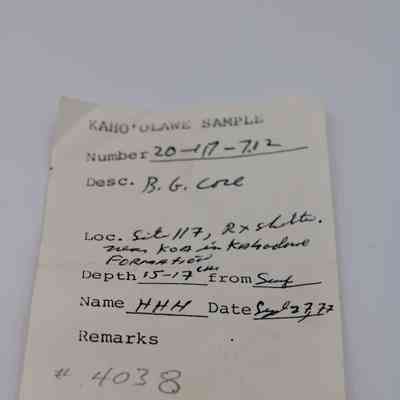 KAHO'OLAWE SAMPLE
Number 20-117-7.12
Desc. B.G. Core
Loc. Site 117, Rx shelter.
near KOA in Kahoolawe
FORMATION
Depth 15-17 cm from Surf
Name HHH Date Sept 27, 77
Remarks
# 4038